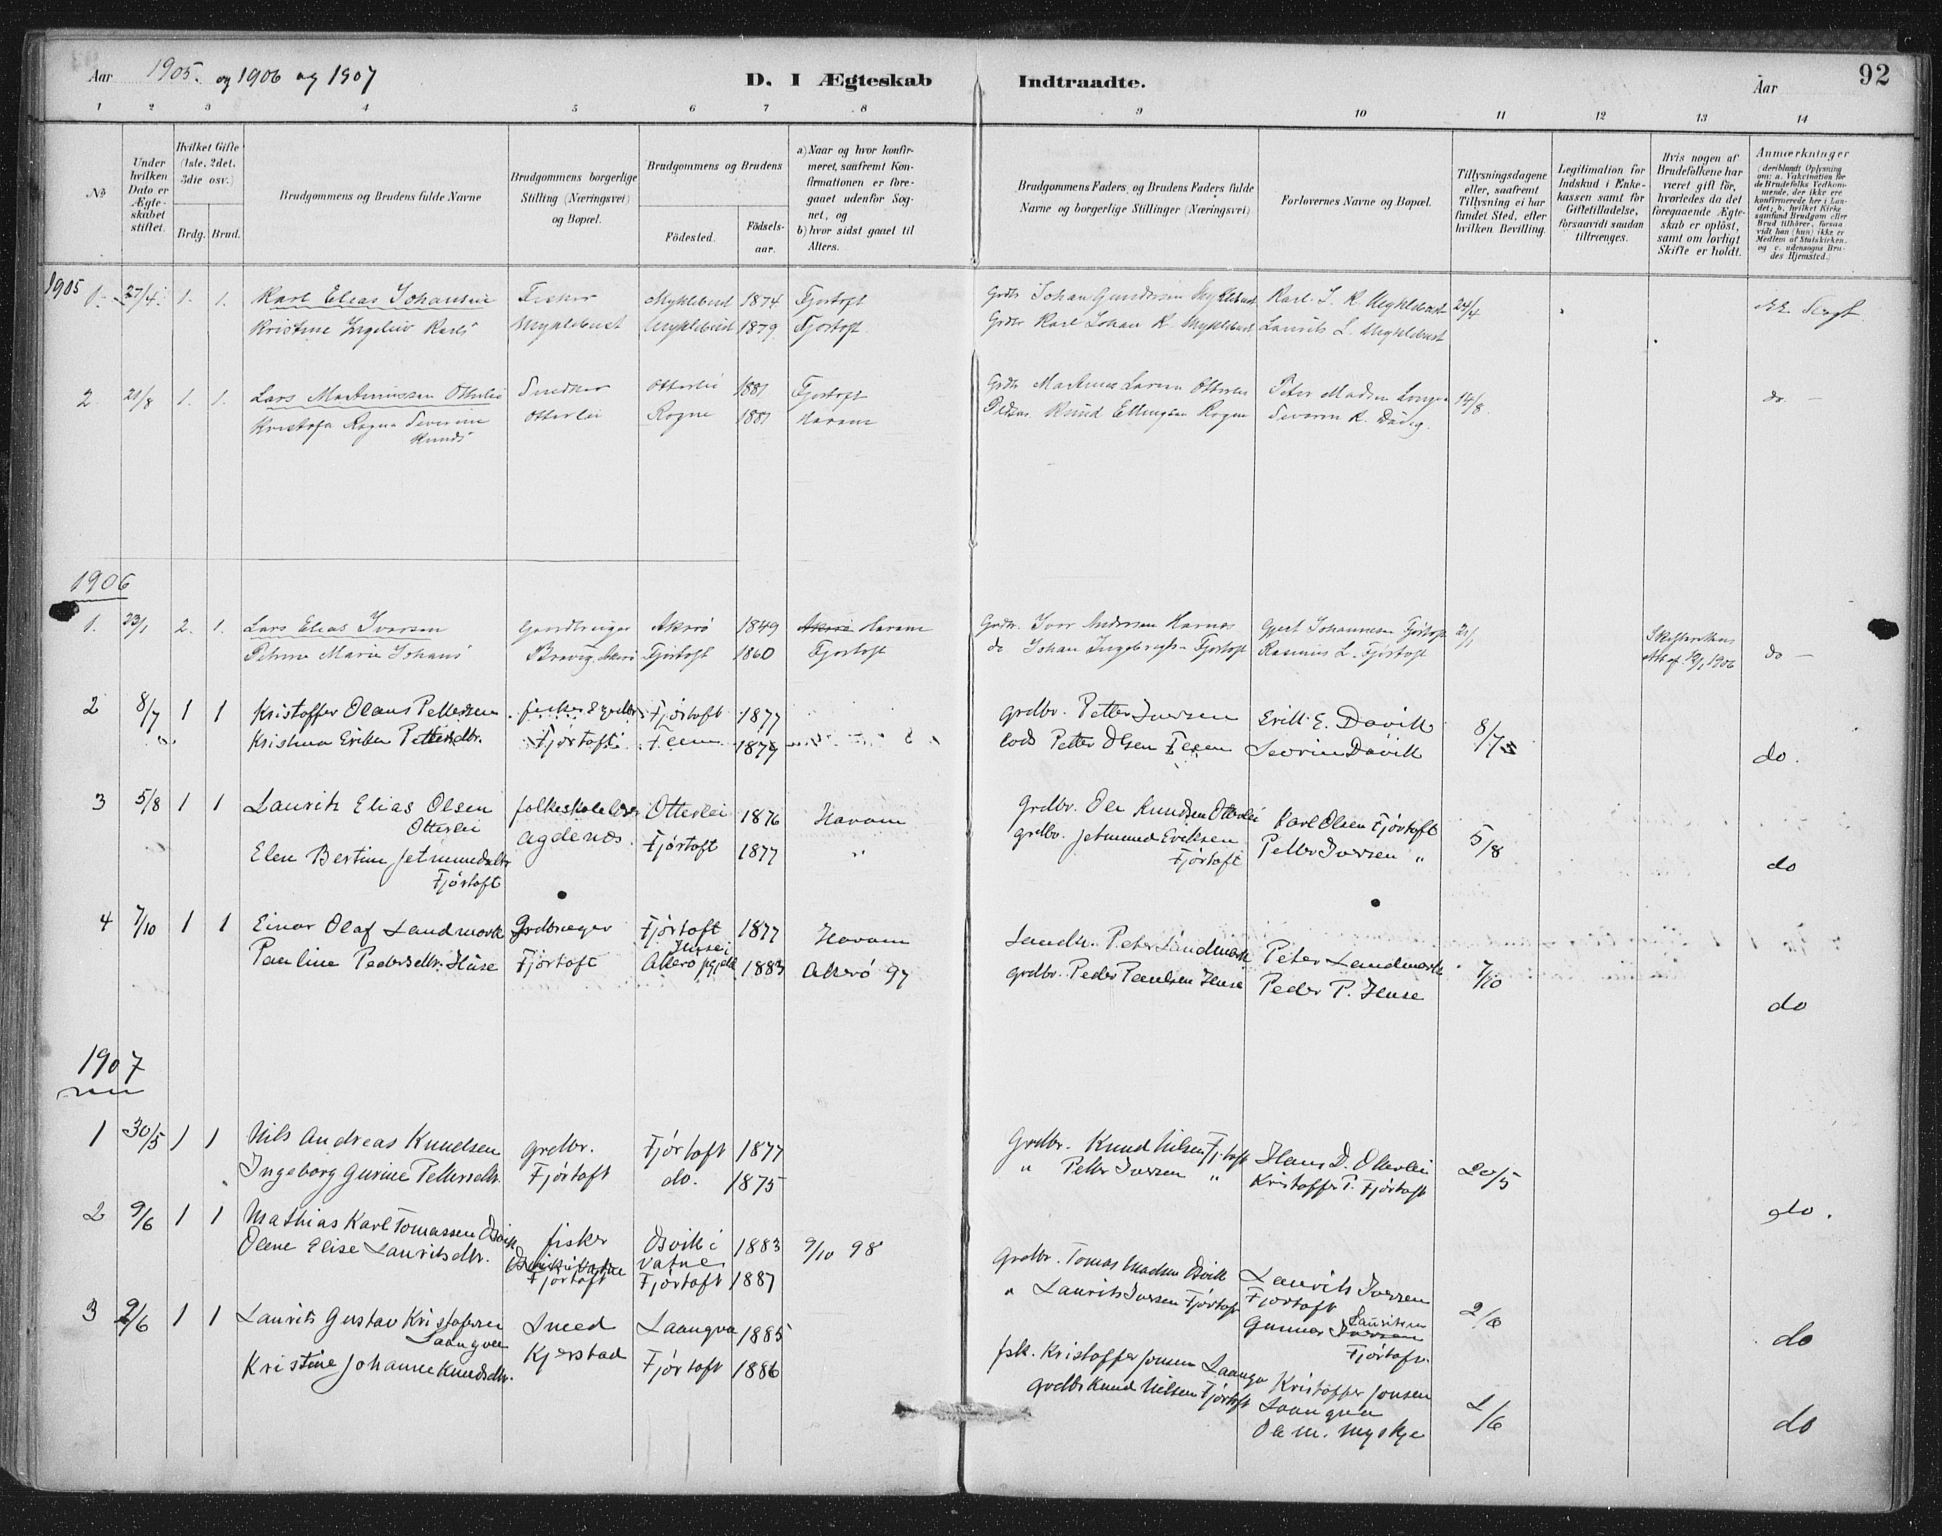 Aar 1905. og 1906 og 1907
D. I Ægteskab Indtraadte.
Aar
92
1 2 3 4 5 6 7 8 9 10 11 12 13 14
No
Under hvilken Dato er Ægteskabet stiftet.
Hvilket Gifte (1ste, 2det, 3die osv.)
Brdg. Brud.
Brudgommens og Brudens fulde Navne
Brudgommens borgerlige Stilling (Næringsvei) og Bopæl.
Brudgommens og Brudens
Fødested.
Fødselsaar.
a) Naar og hvor konfirmeret, saafremt Konfirmationen er foregaaet udenfor Sognet, og
b) hvor sidst gaaet til Alters.
Brudgommens Faders, og Brudens Faders fulde Navne og borgerlige Stillinger (Næringsvei)
Forlovernes Navne og Bopæl.
Tillysningsdagene eller, saafremt Tillysning ei har fundet Sted, efter hvilken Bevilling.
Legitimation for Indskud i Enkekassen samt for Giftetilladelse, forsaavidt saadan tiltrænges.
Hvis nogen af Brudefolkene har været gift før, hvorledes da det foregaaende Ægteskab er opløst, samt om lovligt Skifte er holdt.
Anmærkninger
(deriblandt Oplysning om: a. Vakcination for de Brudefolks Vedkommende, der ikke ere konfirmerede her i Landet; b. hvilket Kirkesamfund Brudgom eller Brud tilhører, forsaavidt han (hun) ikke er Medlem af Statskirken, og c. udensogns Brudes Hjemsted.)
1905
1. 27/4. 1. 1. Karl Elias Johansen Fisker Myklebust 1874 Fjørtoft Grdbr Johan Gundersen Myklebust Karl J. K. Myklebust 24/4
Kristine Ingeliv Karls Myklebust Myklebust 1879 Fjørtoft Grdbr Karl Johan K. Myklebust Laurits L. Myklebust
2 20/8 1. 1. Lars Martinussen Otterlei Snedker Otterlei 1881 Fjørtoft Grdbr Martinus Larsen Otterlei Peter Madsen Longva 14/8. do. —
Kristofa Ragna Severine Otterlei Rogne 1881 Haram Knud Ellingsen Rogne Severin K. Dávig.
Knuds
1906
1. 23/1 2. 1. Lars Elias Iversen Gaardbruger Akrø 1849 Akrø Haram Grdbr. Iver Andersen Harnes Gjert Johannesen Fjørtoft 21/1
Petrine Marie Johans Brevig, Akrø Fjørtoft 1860 Fjørtoft do Johan Ingebrigts- Fjørtoft Rasmus L. Fjørtoft 12/1 1906 do —
2 8/7 1 1 Kristoffer Olaus Pettersen fisker & grdbr. Fjørtoft 1877 grdbr. Petter Iversen Erik E. Davik 8/7
Kristina Petersdtr. Fjørtoft Flem 1879 Petter Olsen Flem Sevrin Dávik do.
3 5/8 1 1 Laurits Elias Olsen folkeskolelærer Otterlei 1876 Haram grdbr. Ole Knudsen Otterlei Karl Olsen Fjørtoft 5/8
Otterlei Agdenes.
Elen Bertine Jetmundsdtr Fjørtoft 1877 " grdbr. Jetmund Eriksen Petter Iversen "
Fjørtoft Fjørtoft do
4 7/10 1 1 Einar Olaf Landmark Grdbruger Fjørtoft 1877 Haram Landh. Peter Landmark Peter Landmark 7/10
Pauline Pedersdtr. Huse Fjørtoft Huse i Akerø pgjeld 1883 Akerø 97 grdbr. Peder Paulsen Huse Peder P. Huse do
1907
1 30/5 1 1 Nils Andreas Knudsen grdbr. Fjørtoft 1877 Grdbr. Knud Nilsen Fjørtoft Hans D. Otterlei 20/5
Ingeborg Gurine Pettersdtr. Fjørtoft do. 1875 " Petter Iversen " Kristoffer P. Fjørtoft do.
2 9/6 1 1 Mathias Karl Tomassen Osvik fisker Osvik i Vatne 1883 9/10 98 Grdbr. Tomas Madsen Osvik Laurits Iversen Fjørtoft 2/6
Olene Elise Lauritsdtr. Osvik i Vatne Fjørtoft Fjørtoft 1887 " Laurits Iversen Fjørtoft Gunnar Iversen Lauritsen Fjørtoft. do
3 9/6 1 1 Laurits Gustav Kristofersen Smed Laangva 1885 fsk. Kristoffer Jonsen Laangva Kristoffer Jonsen Laangva 2/6
Laangva Kjerstad
Kristine Johanne Knudsdtr. Fjørtoft 1886 Grdbr Knud Nilsen Fjørtoft Ole M. Myskje do